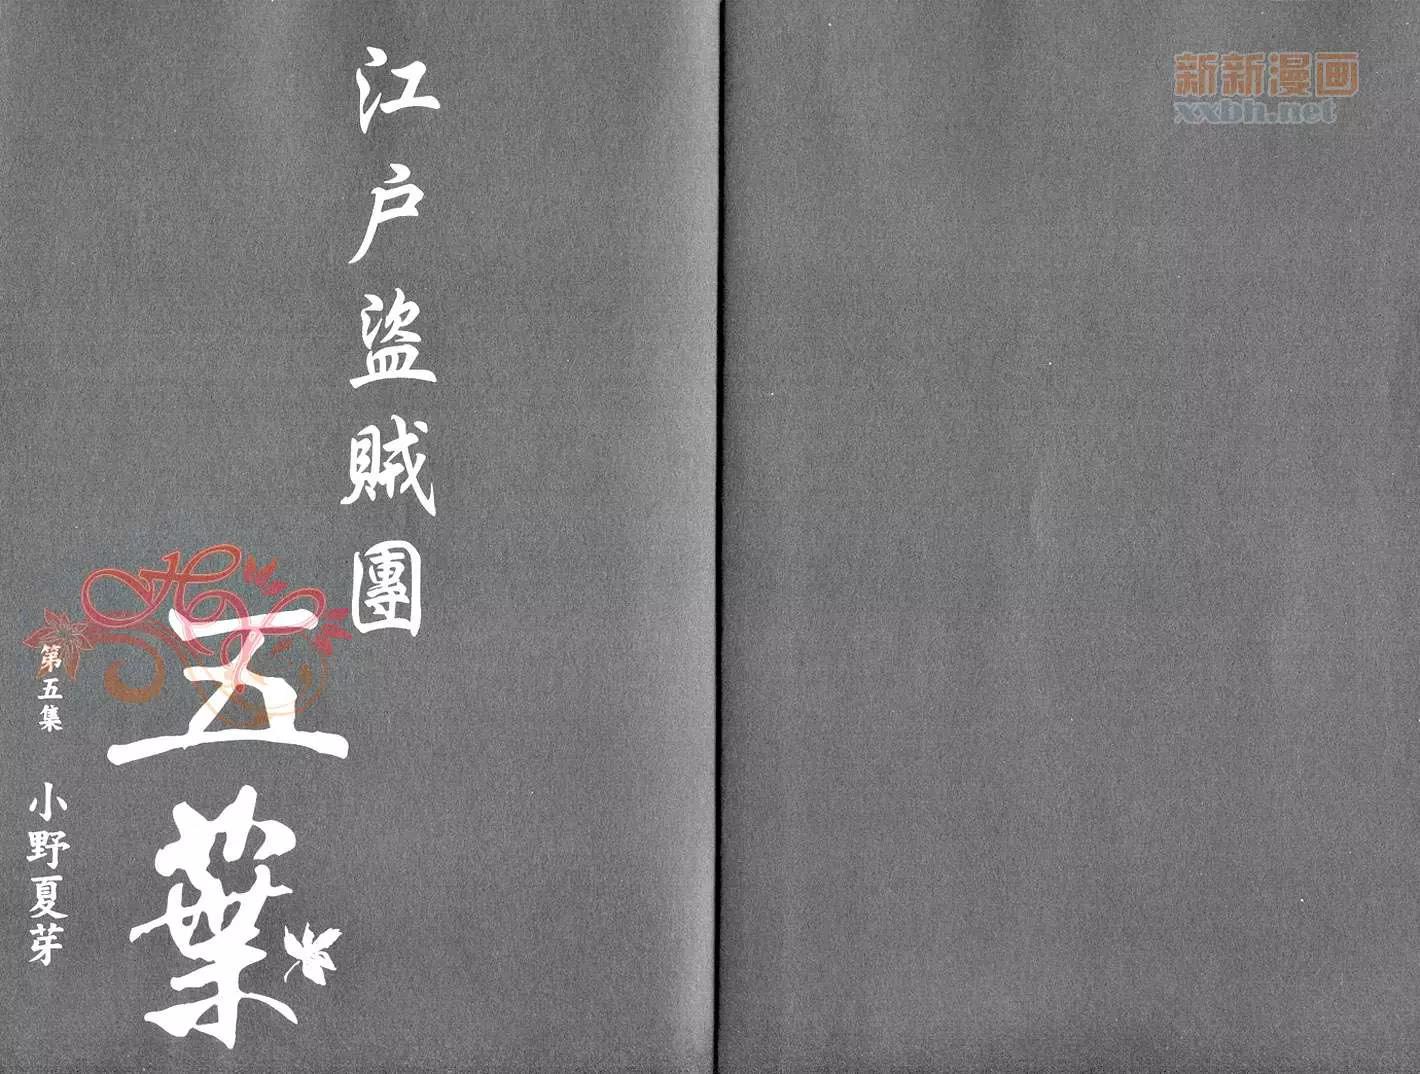 新新漫画
xxbh.net
江戶盜賊團
五葉
第五集
小野夏芽